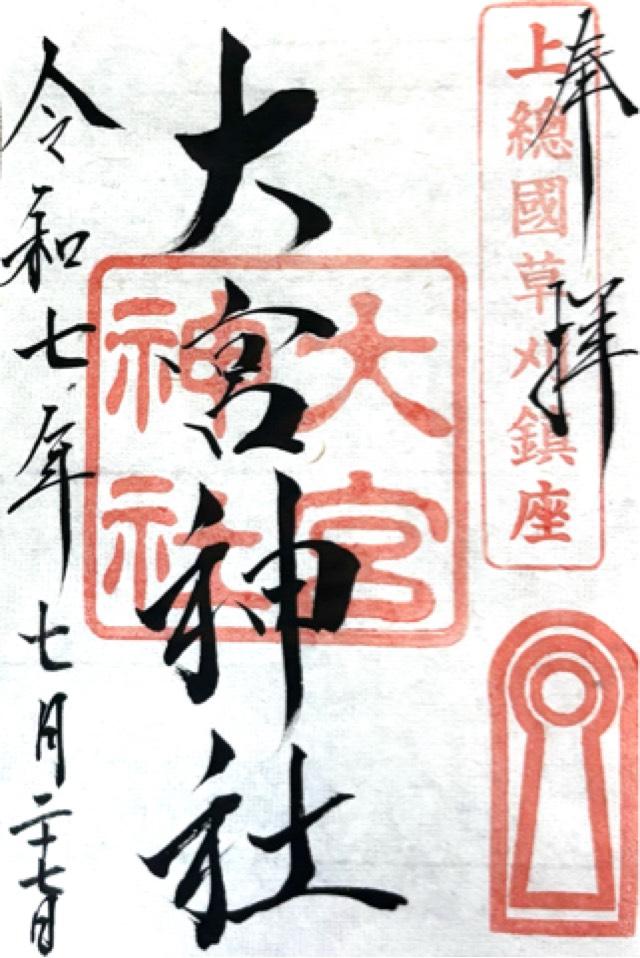 奉拝
上總國草刈鎮座
大宮神社
大宮神社
令和七年七月二十七日